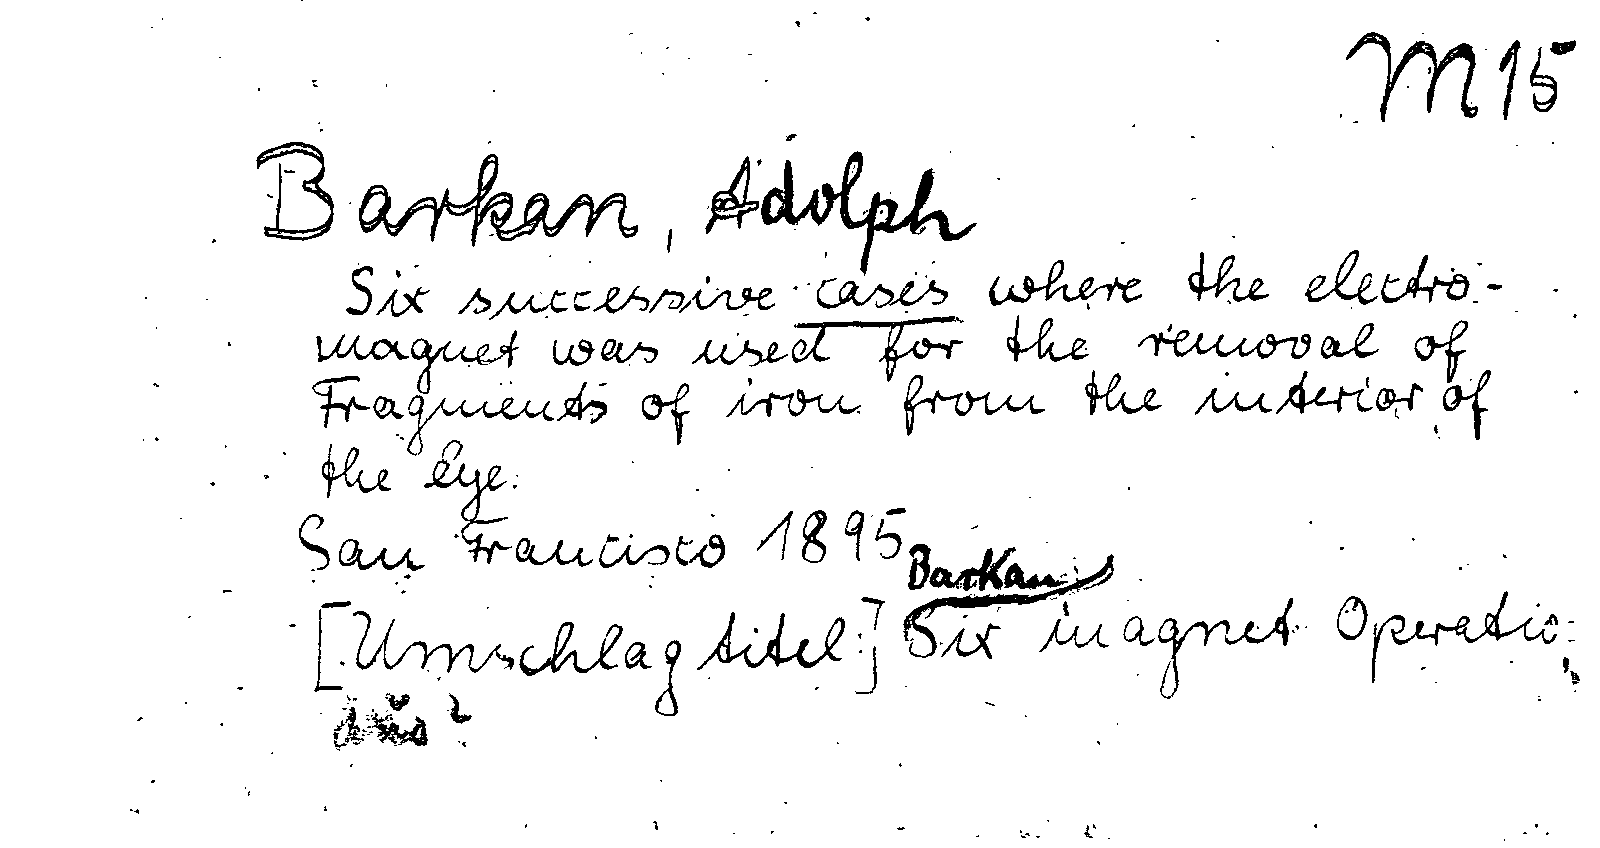 M 15
Barkan, Adolph
Six successive cases where the electro-
magnet was used for the removal of
Fragments of iron from the interior of
the Eye.
San Francisco 1895
Barkan
[Umschlagtitel:] Six magnet Operatio-